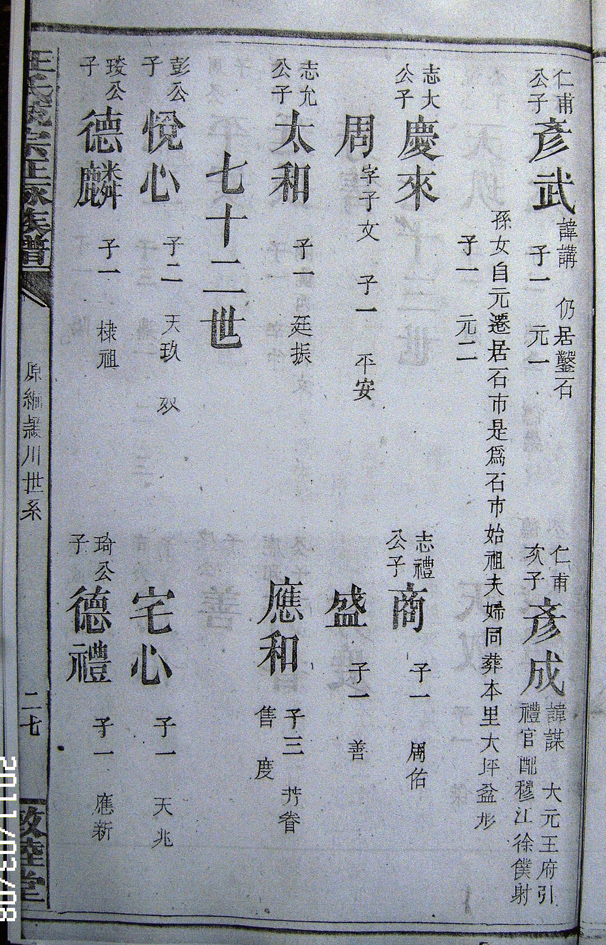 仁甫公子 彥武 諱講 仍居鑿石 子一 元一
仁甫次子 彥成 諱謀 大元王府引禮官配穆江徐僕射
孫女自元遷居石市是爲石市始祖夫婦同葬本里大坪盆形
子一 元二
志大公子 慶來
志禮公子 商 子一 周佑
周 字子文 子一 平安
盛 子一 善
志允公子 太和 子一 廷振
應和 子三 芳 眷 售 度
七十二世
彭公子 悅心 子二 天玖 双
宅心 子一 天兆
琰公子 德麟 子一 棣祖
琦公子 德禮 子一 應新
宗正脉族譜
原編 川世系
二七
敦睦堂
2011/03/08